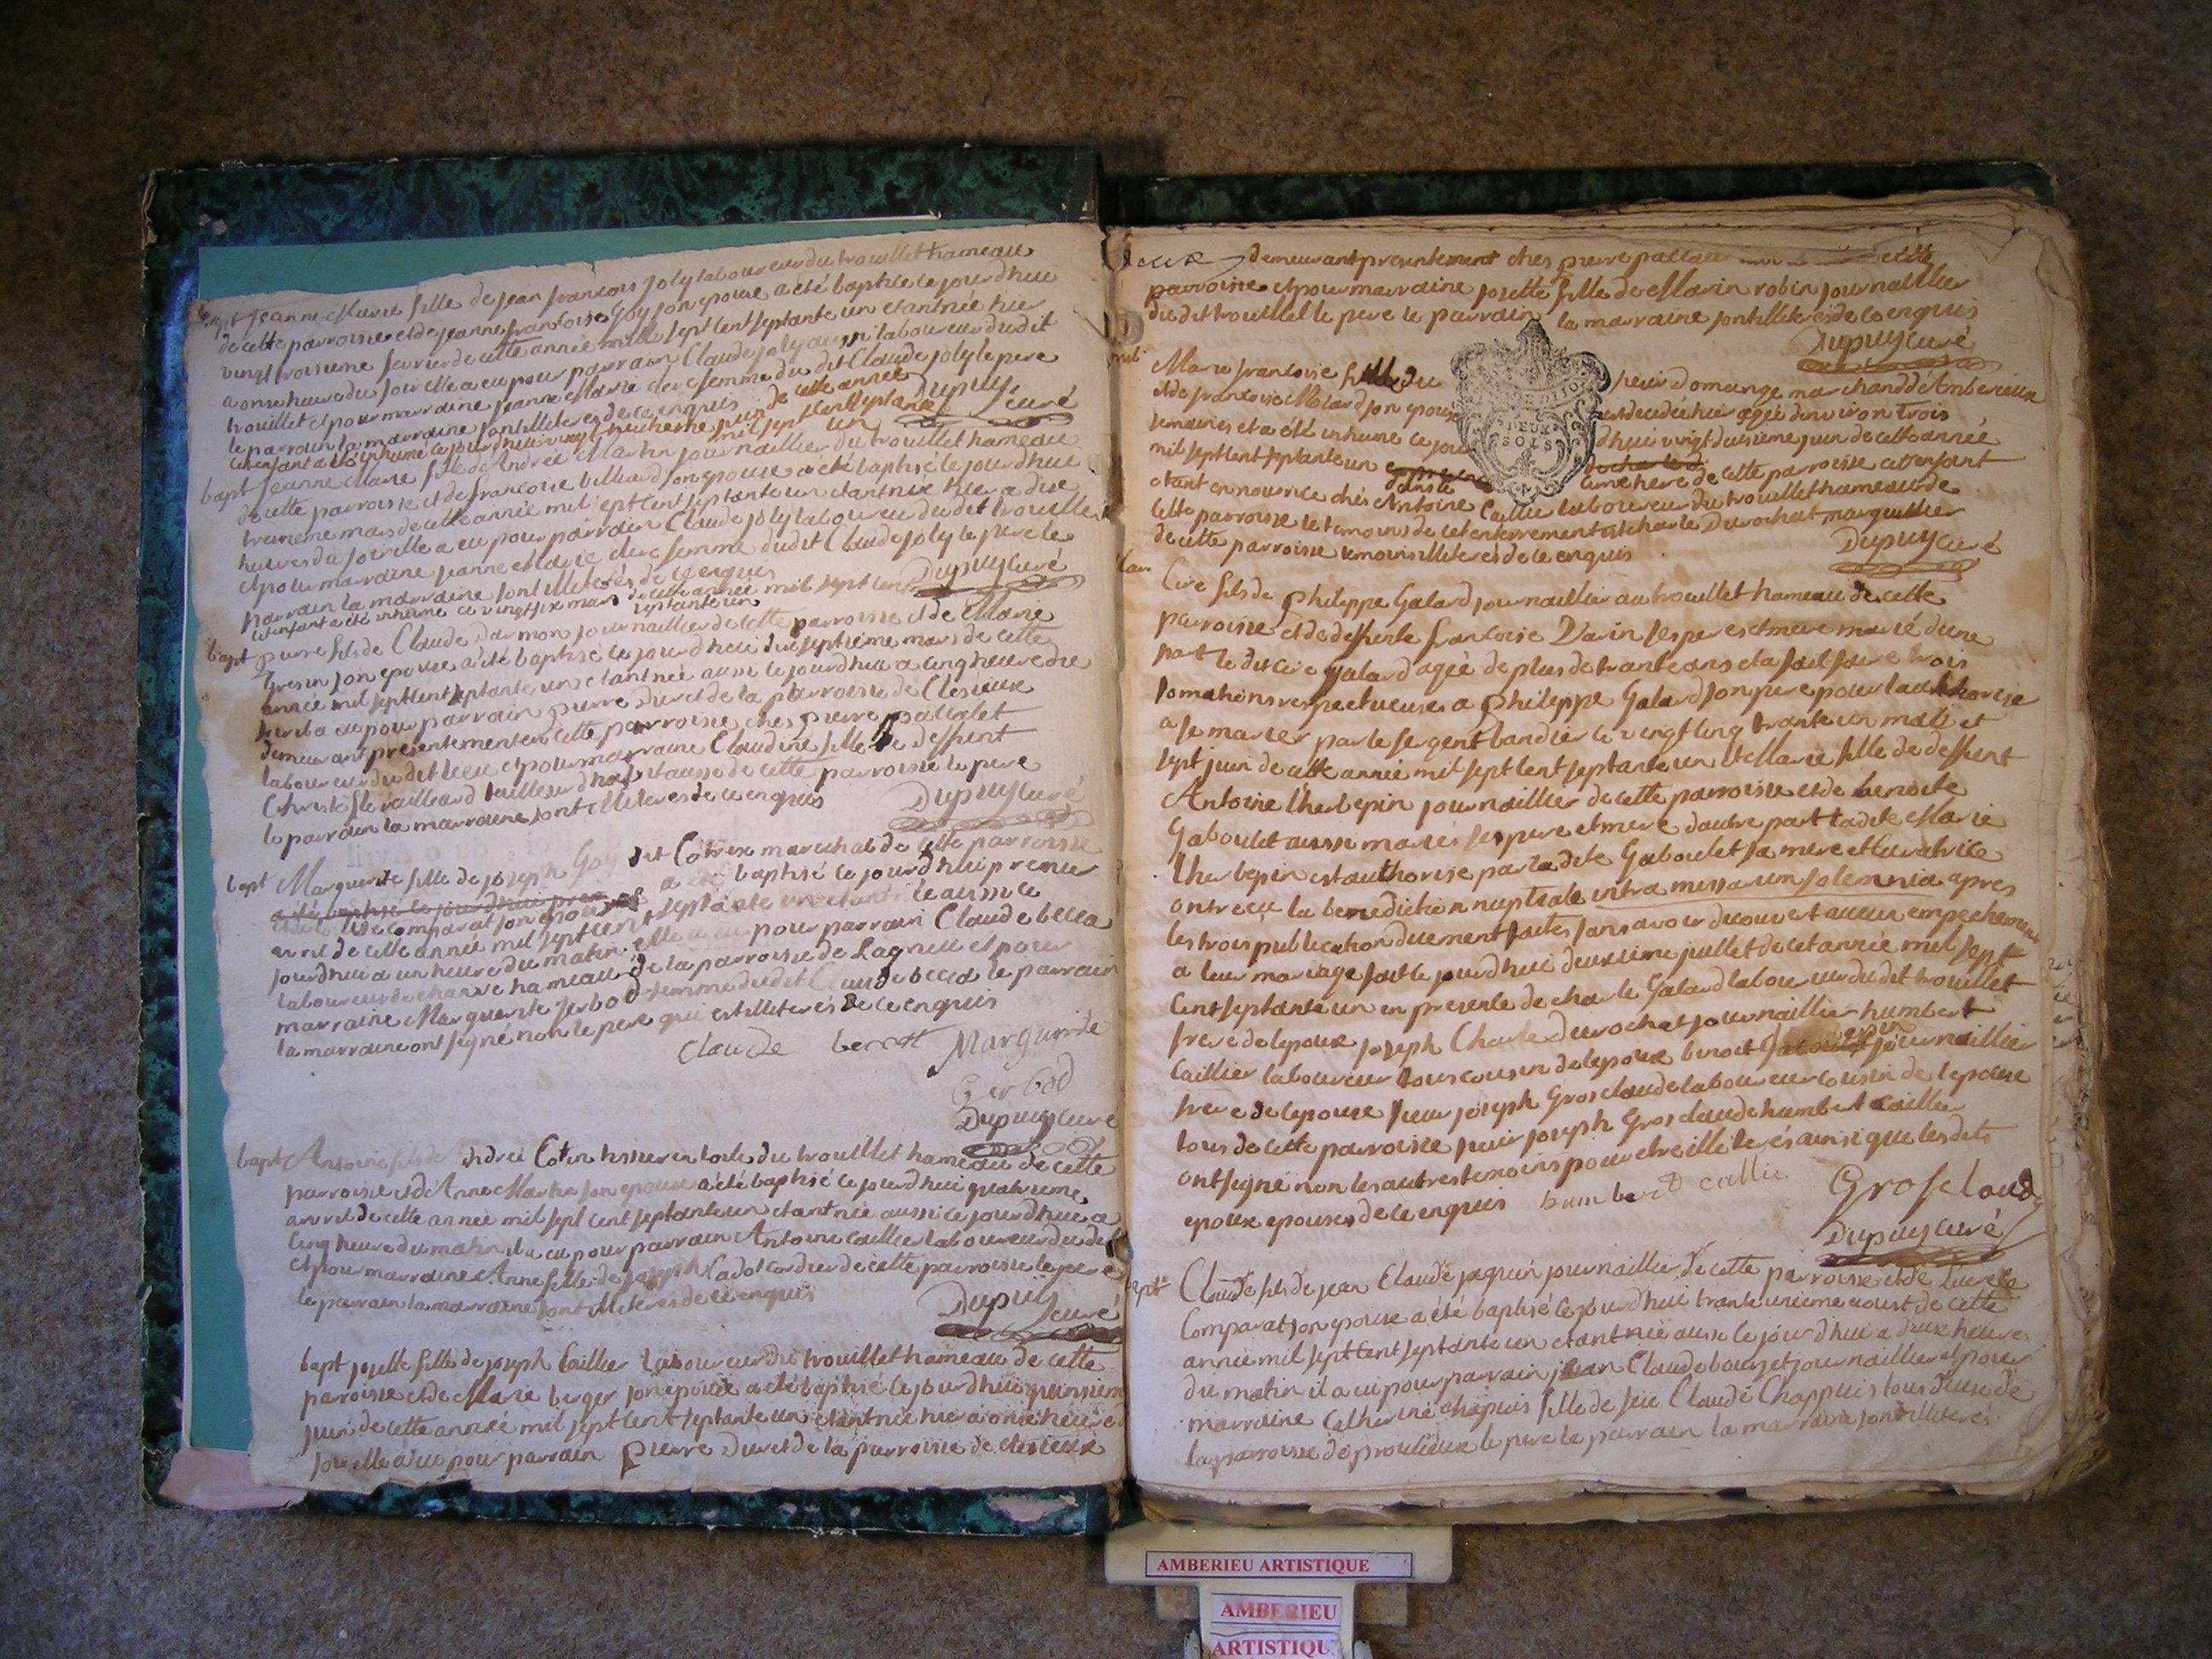 bapt Jeanne Marie fille de jean francois joly laboureur du trouillet hameau
de cette parroisse et de jeanne francoise Goy son epouse a été baptisé le jourdhui
vingt troisieme fevrier de cette année mille sept cent septante un etant née hier
a onse heure du soir elle a eu pour parrain Claude joly aussi laboureur du dit
trouillet et pour marraine jeanne Marie clerc femme du dit Claude joly le pere
le parrain la marraine sont illiterés de ce enquis Dupuy
curé
cet enfant a été inhumé ce jourdhui vingt juin de cette année
mil sept cent septante un
bapt Jeanne Marie fille de André Martin journaillier du trouillet hameau
de cette parroisse et de francoise billiard son epouse a été baptisé le jourdhui
mars de cette année mil sept cent septante un etant née hier a dix
heures du soir elle a eu pour parrain Claude joly laboureur du dit trouillet
et pour marraine jeanne Marie clerc femme dudit Claude joly le pere le
parrain la marraine sont illiterés de ce enquis Dupuy curé
cet enfant a été inhumé ce vingt six mars de cette année mil sept cent
septante un
bapt pierre fils de Claude Darmon journaillier de cette parroisse et de Marie
Gresin son epouse a été baptisé le jourdhui dix septieme mars de cette
année mil sept cent septante un etant né aussi le jourdhui a cinq heure du
il a eu pour parrain pierre Duret de la parroisse de Clesieux
demeurant presentement en cette parroisse ches pierre pallalet
laboureur du dit lieu et pour marraine Claudine fille de deffunt
tailleur d'habit aussi de cette parroisse le pere
le parrain la marraine sont illiteres de ce enquis Dupuy curé
bapt Marguerite fille de joseph Goy dit Cotrex marechal de cette parroisse
a été baptisé le jourdhui premier
comparat son epouse a été baptisé le jourdhui premier
avril de cette année mil sept cent septante un etant née aussi ce
jourdhui a un heure du matin elle a eu pour parrain Claude becca
laboureur de charve hameau de la parroisse de Lagnieu et pour
marraine Marguerite Gerbod femme dudit Claude becca le parrain
la marraine ont signé non le pere qui est illiterés de ce enquis
Claude Marguerite
Gerbod
Dupuy curé
bapt Antoine fils de Andrei Cotin tisseur en toile du trouillet hameau de cette
parroisse et de Anne Martin son epouse a été baptisé le jourdhui quatrieme
avril de cette année mil sept cent septante un etant né aussi le jourdhui a
cinq heure du matin il a eu pour parrain Antoine caillier laboureur du dit
et pour marraine Anne fille de joseph Cadot cordier de cette parroisse le pere
le parrain la marraine sont illiteres de ce enquis Dupuy
curé
bapt josette fille de joseph Caillier laboureur du trouillet hameau de cette
parroisse et de Marie berger son epouse a été baptisé le jourdhui quinsieme
juin de cette année mil sept cent septante un etant née hier a onse heure du
soir elle a eu pour parrain pierre Duret de la parroisse de clesieux
deux demeurant presentement ches pierre cette
parroisse et pour marraine josette fille de Marin robin journaillier
du dit trouillet le pere le parrain la marraine sont illiterés de ce enquis
Dupuy curé
Marie francoise fille du sieur Domange marchand d'Amberieux
et de francoise Molard son epouse est decedée hier agée d'environ trois
semaines et a été inhumé ce jourdhui vingt deusieme juin de cette année
DEUX
SOLS
mil sept cent septante un dans le cimetiere de cette parroisse cet enfant
etant en nourrice chés Antoine Caillier laboureur du trouillet hameau de
cette parroisse le temoins de cet enterrement est charle Durochat marguillier
de cette parroisse temoins illiterés de ce enquis
Dupuy curé
Cire fils de philippe Galard journaillier au trouillet hameau de cette
parroisse et de deffunte francoise Darin ses pere et mere marié d'une
part le dit Cire galard ageé de plus de trante ans et a fait faire trois
somations respectueuses a philippe Galard son pere pour l'authorise
a se marier par le sergent bandier le vingt cinq trante un mai et
sept juin de cette année mil sept cent septante un et Marie fille de deffunt
Antoine l'herbepin journaillier de cette parroisse et de benoite
Gaboulet aussi mariés ses pere et mere d'autre part ladite Marie
l'herbepin est authorise par la dite Gaboulet sa mere et curatrice
ont reçu la benediction nuptiale intra missarum solemnia apres
les trois publication duement faites sans avoir decouvert aucun empechement
a leur mariage fait le jourdhui deuxieme juillet de cet année mil sept
cent septante un en presence de charle Galard laboureur du dit trouillet
frere de lepoux joseph Charle Durochat journaillier humbert
Caillier laboureur tous cousin de lepoux benoit journaillier
frere de lepouse sieur joseph Grosclaude laboureur cousin de lepouse
tous de cette parroisse sieur joseph Grosclaude humbert caillier
ont signé non les autres temoins pour etre illiterés ainsi que lesdits
epoux epouses de ce enquis humbert callie Grosclaude
Dupuy curé
bapt Claude fils de jean Claude jaquin journaillier de cette parroisse et de
Comparat son epouse a été baptisé le jourdhui trante unieme aoust de cette
année mil sept cent septante un etant né aussi le jour dhui a deux heures
du matin il a eu pour parrain jean Claude bourget journaillier et pour
marraine Catherine chapuis fille de feu Claude Chappuis tous deux de
la parroisse de proulieux le pere le parrain la marraine sont illiteres
AMBERIEU ARTISTIQUE
AMBERIEU
ARTISTIQU